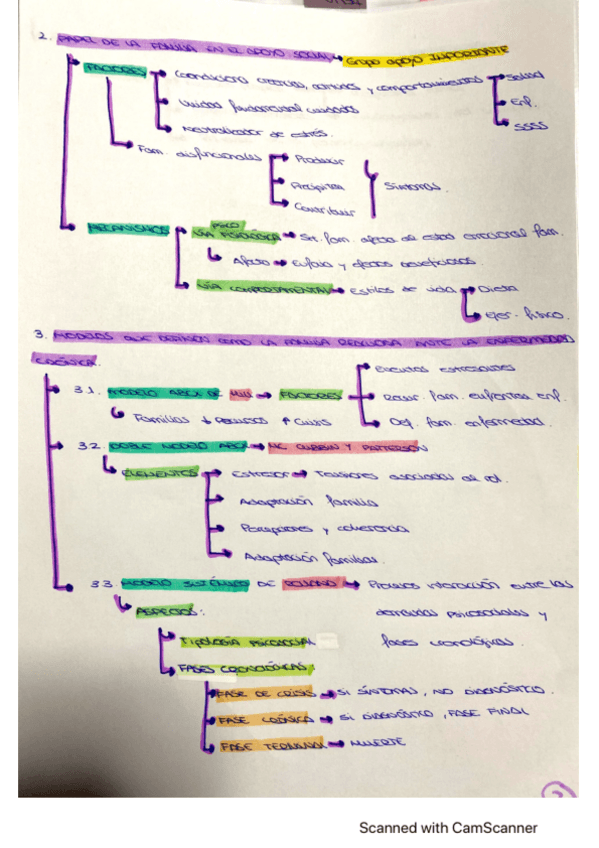 2. PAPEL DE LA FAMILIA EN EL APOYO SOCIAL → Grupo apoyo IMPORTANTE
FACTORES → Condiciona creencias, comunes y comportamientos → Salud
→ Enf.
Unidad fundamental cuidados
→ SSSS
Neutralizador de estrés.
Fam. disfuncionales → Producir
Precipitar
Síntomas.
Contribuir
MECANISMOS → VÍA PSICO FISIOLÓGICA → Sit. fam. afecta de estado emocional fam.
Afecto → Euforia y efectos beneficiosos.
VÍA COMPORTAMENTAL → Estilos de vida → Dieta
→ Ejer. físico.
3. MODELOS QUE DEFINEN COMO LA FAMILIA REACCIONA ANTE LA ENFERMEDAD
CRÓNICA.
→ Eventos estresantes
3.1. MODELO ABCX DE HILL → FACTORES → Recur. fam. enfrentar enf.
Familias ↓ Recursos ↑ Crisis
→ Def. fam. enfermedad.
3.2. DOBLE MODELO ABCX → MC CUBBIN Y PATTERSON
ELEMENTOS → Estresor → Tensiones asociadas al rol.
Adaptación familia
Percepciones y coherencia
Adaptación familiar.
3.3. MODELO SISTÉMICO DE ROLLAND → Proceso interacción entre las
demandas psicosociales y
ASPECTOS:
fases cronológicas.
TIPOLOGÍA PSICOSOCIAL
FASES CRONOLÓGICAS:
FASE DE CRISIS → SI SÍNTOMAS, NO DIAGNÓSTICO.
FASE CRÓNICA → SI DIAGNÓSTICO, FASE FINAL
FASE TERMINAL → MUERTE
2
Scanned with CamScanner